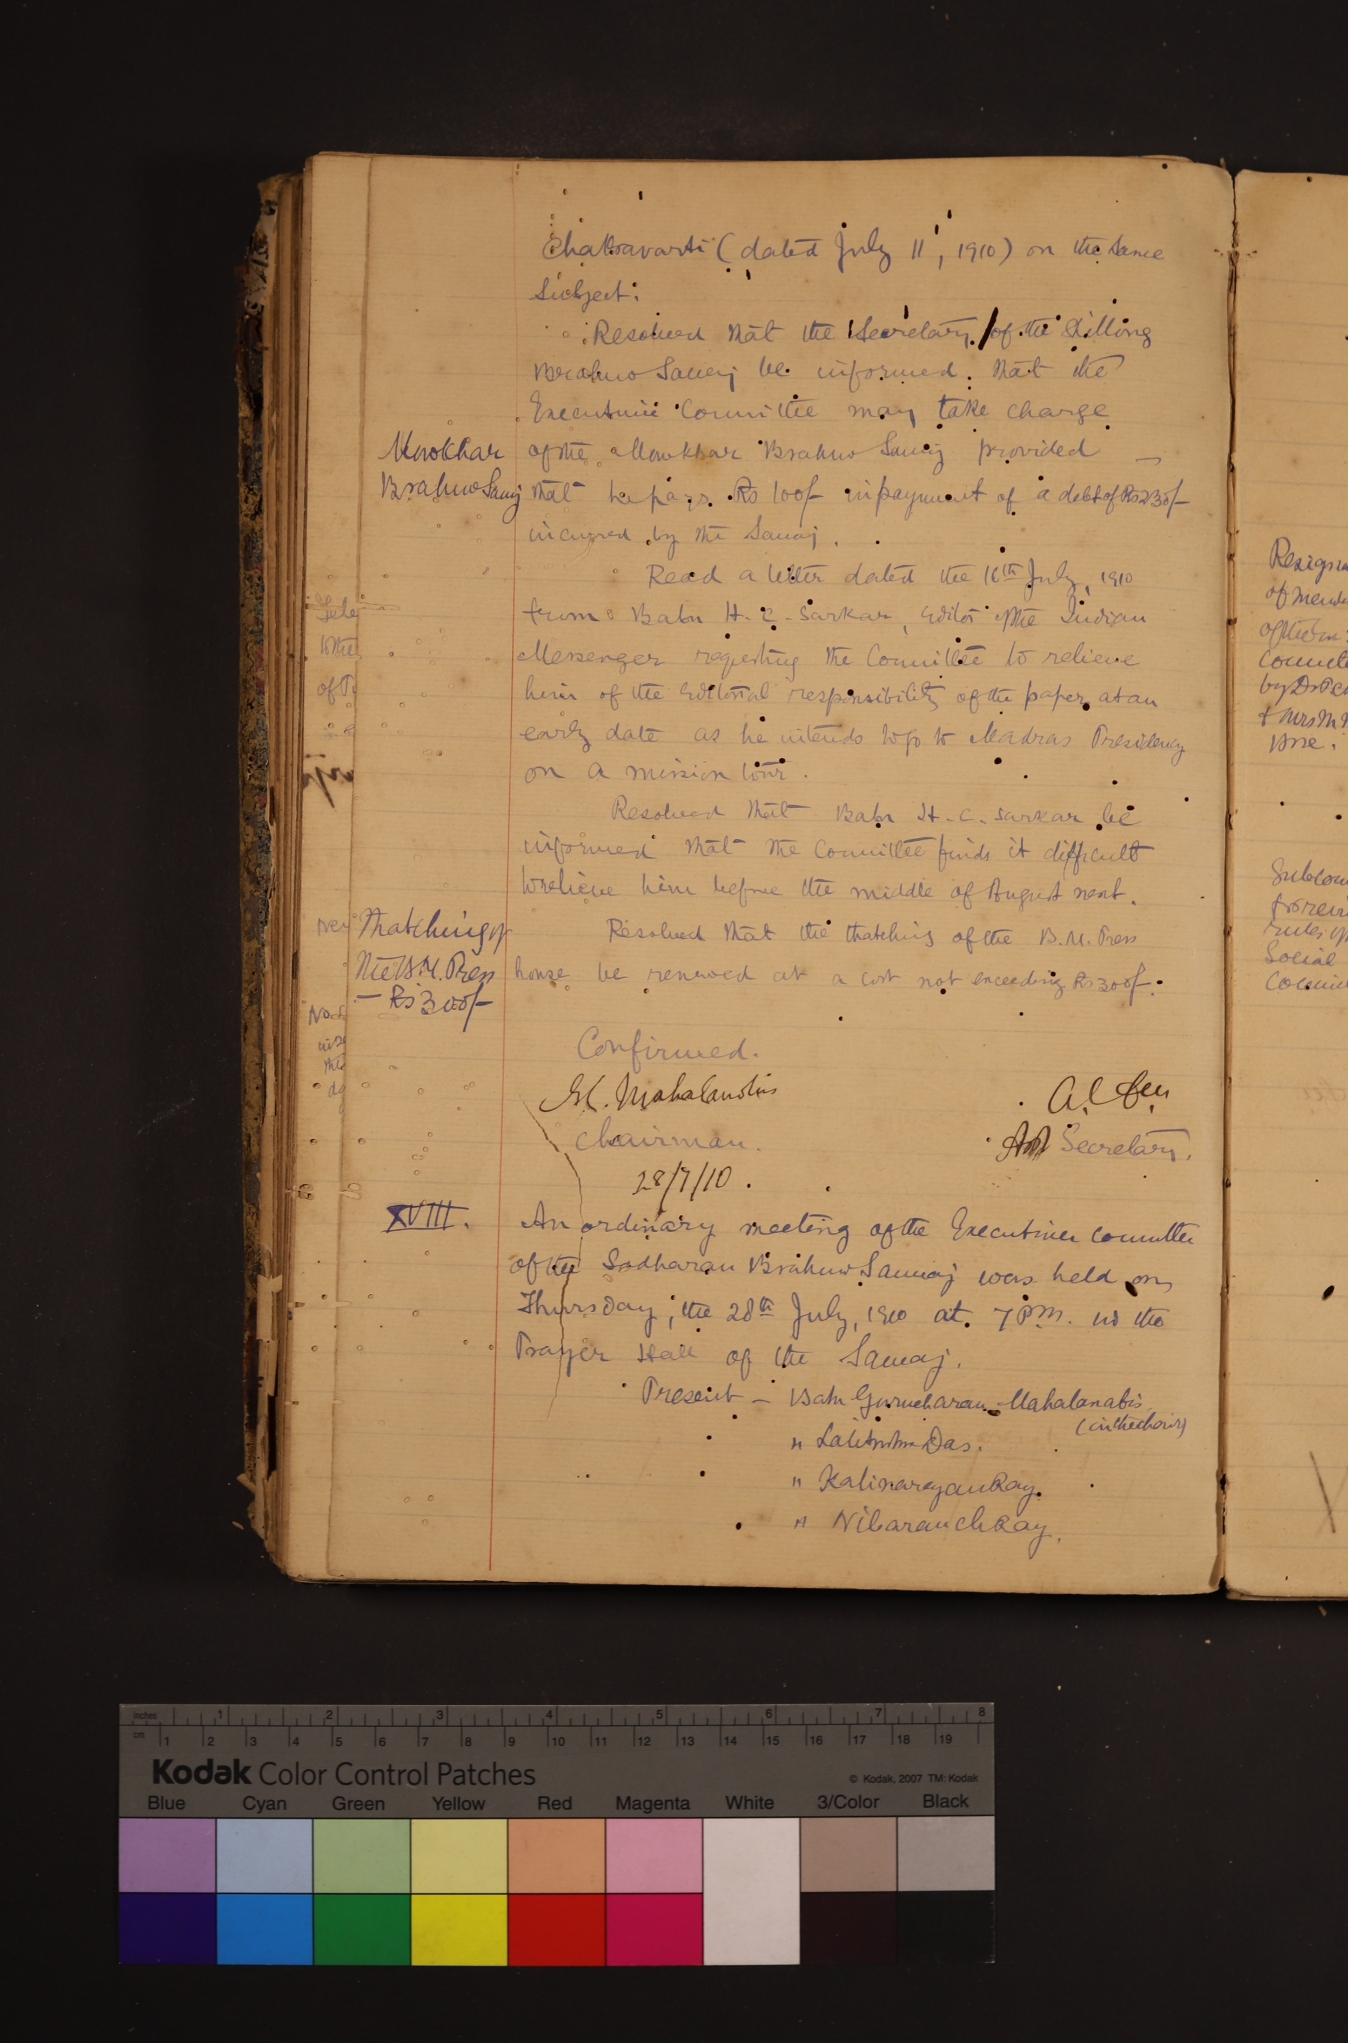 Chakravarti (dated July 11, 1910) on the same
subject.
Resolved that the Secretary of the Shillong
Brahmo Samaj be informed that the
Executive Committee may take charge
Mowkhar
of the Mowkhar Brahmo Samaj provided
Brahmo Samaj
that he pays Rs 100/- in payment of a debt of Rs 230/-
incurred by the Samaj.
Read a letter dated the 16th July, 1910
from Babu H. C. Sarkar, Editor of the Indian
Messenger requesting the Committee to relieve
him of the Editorial responsibility of the paper at an
early date as he intends to go to Madras Presidency
on a mission tour.
Resolved that Babu H. C. Sarkar be
informed that the Committee finds it difficult
to relieve him before the middle of August next.
Thatching of
the B.M. Press
— Rs 300/-
Resolved that the thatching of the B.M. Press
house be renewed at a cost not exceeding Rs 300/-.
Confirmed.
G.C. Mahalanobis
Chairman.
28/7/10.
A.C. Sen
Asst Secretary.
XVIII.
An ordinary meeting of the Executive Committee
of the Sadharan Brahmo Samaj was held on
Thursday, the 28th July, 1910 at 7 P.M. in the
Prayer Hall of the Samaj.
Present — Babu Gurucharan Mahalanabis
(in the chair)
" Lalit Mohan Das.
" Kalinarayan Ray.
" Nibaran Ch Ray.
of
by Dr P.
Social
inches 1 2 3 4 5 6 7 8
cm 1 2 3 4 5 6 7 8 9 10 11 12 13 14 15 16 17 18 19
Kodak Color Control Patches
© Kodak, 2007 TM: Kodak
Blue Cyan Green Yellow Red Magenta White 3/Color Black